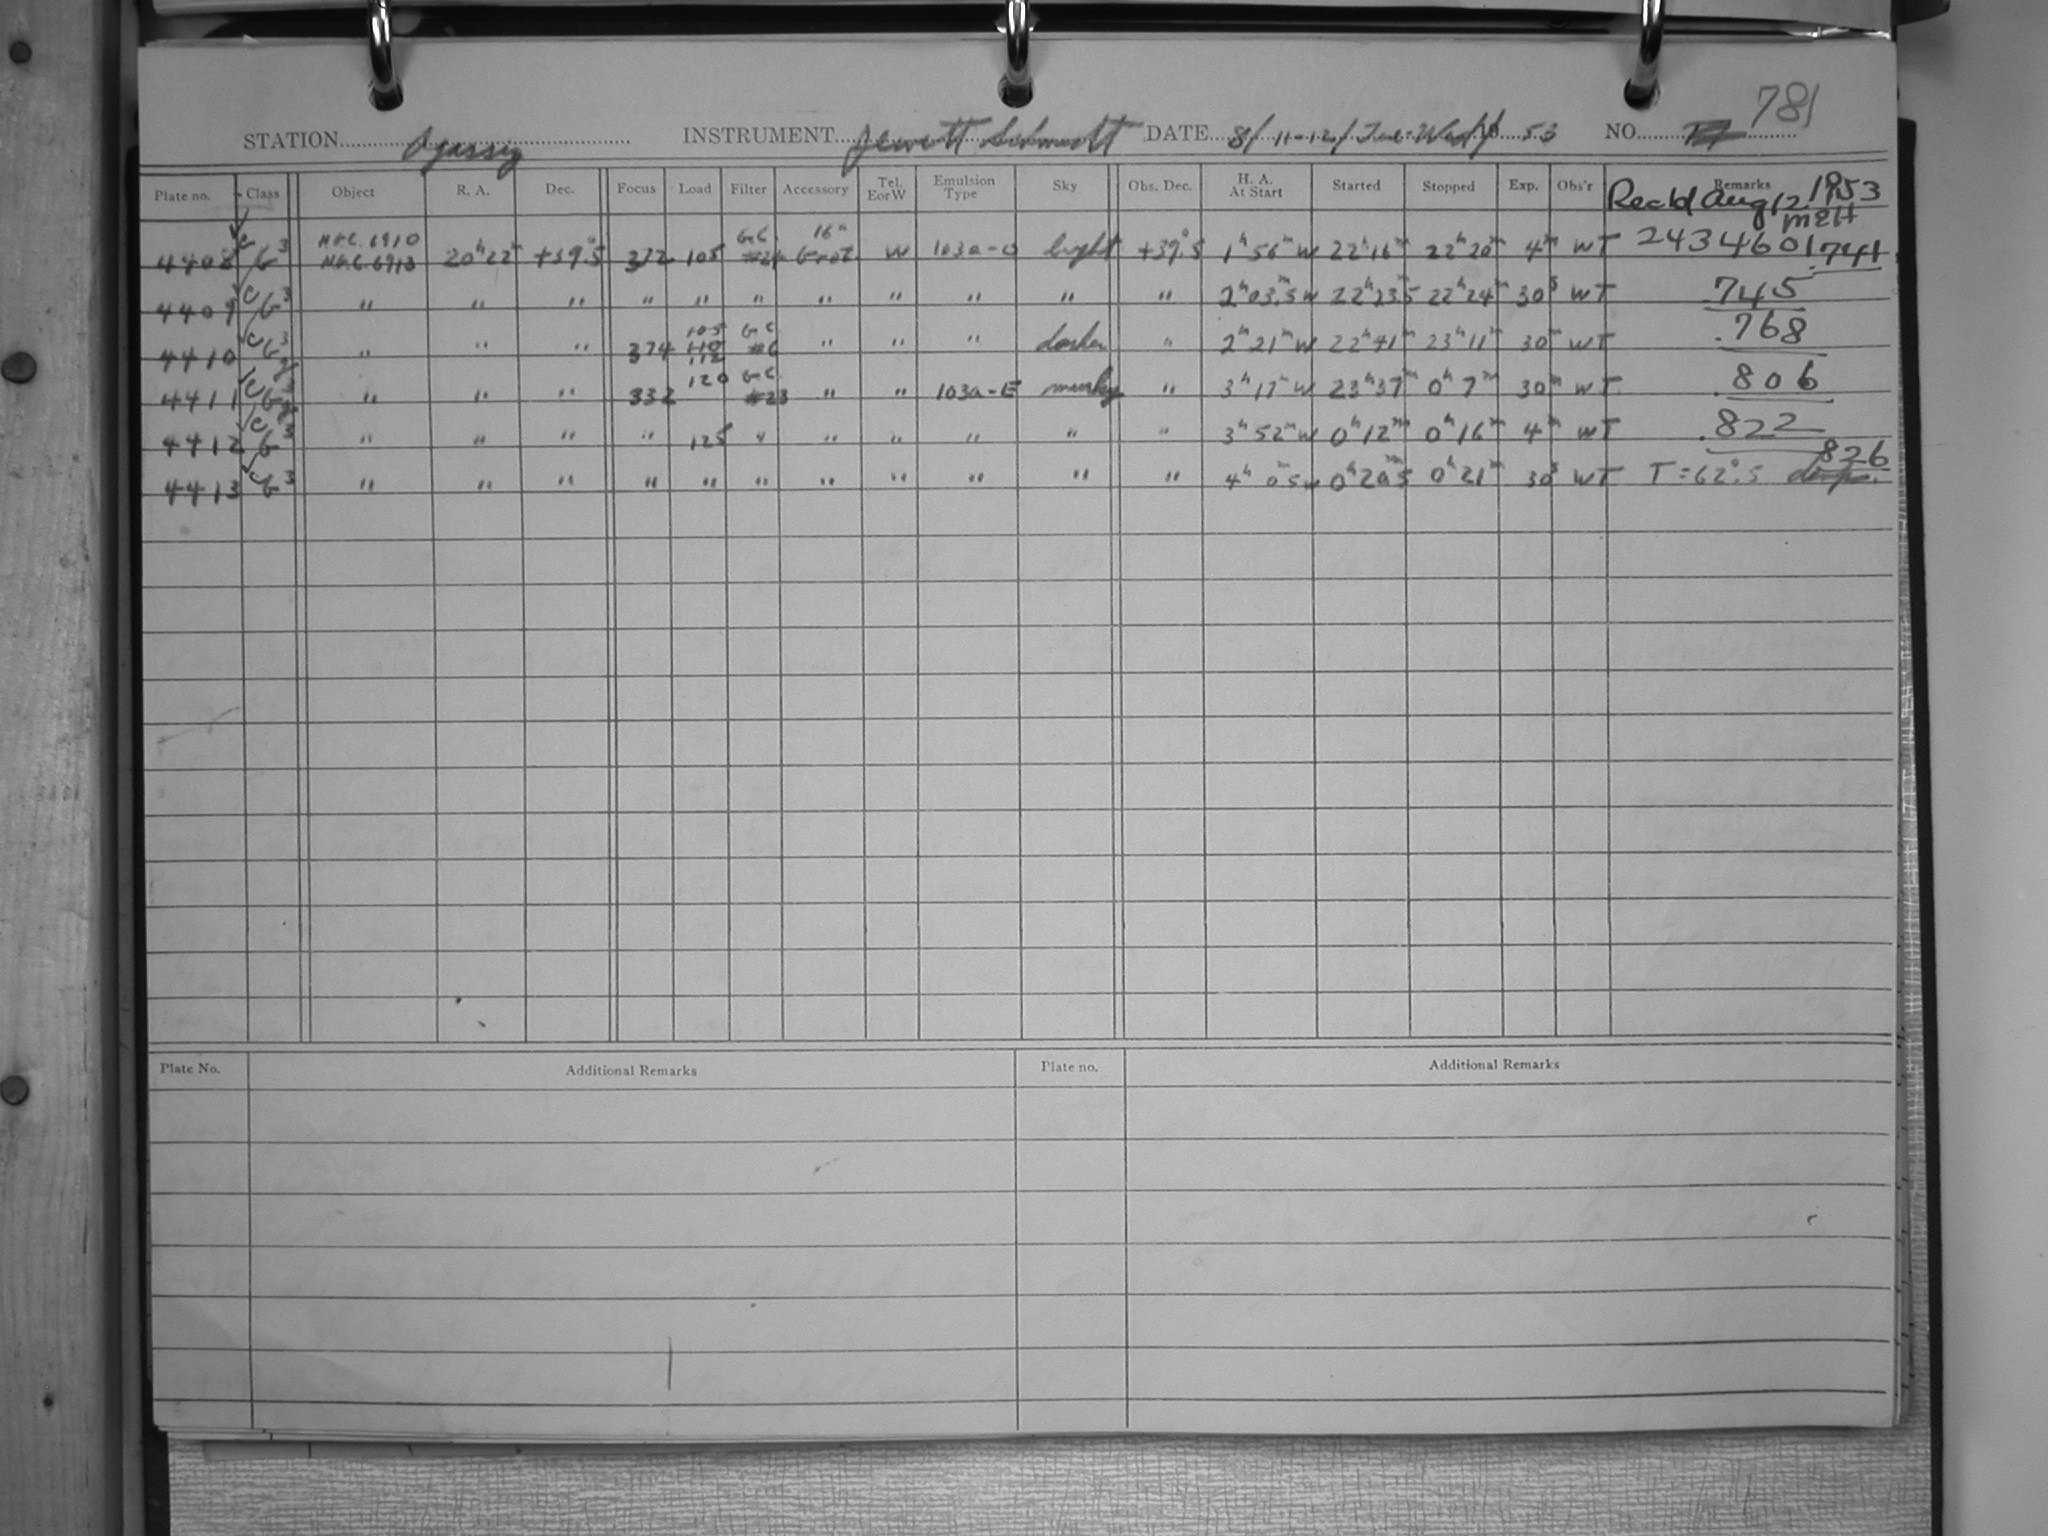 781
STATION Agassiz INSTRUMENT Jewett Schmidt DATE 8/11-12/Tue-Wed/19 53 NO.
Plate no. Class Object R. A. Dec. Focus Load Filter Accessory Tel. E or W Emulsion Type Sky Obs. Dec. H. A. At Start Started Stopped Exp. Obs'r Remarks
Rec'd Aug 12 1953
MEH
4408 N.G.C. 6910 N.G.C. 6913 20h22m +39°.5 372 105 G.C. 16" W 103a-O light +39°.5 1h56mW 22h16m 22h20m 4m WT 2434601.741
4409 " " " " " " " " " " " 2h03m.5W 22h23.5 22h24m 30s WT 745
4410 " " " 374 105 110 112 G.C. #6 " " " darker " 2h21mW 22h41m 23h11m 30m WT .768
4411 " " " 332 120 G.C. #23 " " 103a-E murky " 3h17mW 23h37m 0h7m 30m WT .806
4412 " " " " 125 " " " " " " 3h52mW 0h12m 0h16m 4m WT .822
4413 " " " " " " " " " " " 4h0m.5W 0h20m.5 0h21m 30s WT T=62°.5 826
Plate No. Additional Remarks Plate no. Additional Remarks